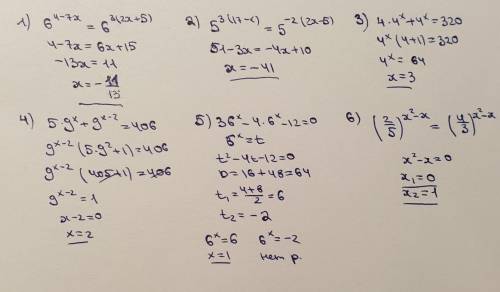 1) 6^{4-7x} = 6^{3(2x+5)}
4-7x = 6x+15
-13x = 11
x = -11/13
2) 5^{3(17-x)} = 5^{-2(2x-5)}
51-3x = -4x+10
x = -41
3) 4·4^x+4^x = 320
4^x(4+1) = 320
4^x = 64
x = 3
4) 5·9^x + 9^{x-2} = 406
9^{x-2}(5·9^2+1) = 406
9^{x-2}(405+1) = 406
9^{x-2} = 1
x-2 = 0
x = 2
5) 36^x - 4·6^x - 12 = 0
6^x = t
t^2-4t-12 = 0
D = 16+48 = 64
t_1 = (4+8)/2 = 6
t_2 = -2
6^x = 6 6^x = -2
x = 1 нет р.
6) (2/5)^{x^2-x} = (4/3)^{x^2-x}
x^2-x = 0
x_1 = 0
x_2 = 1